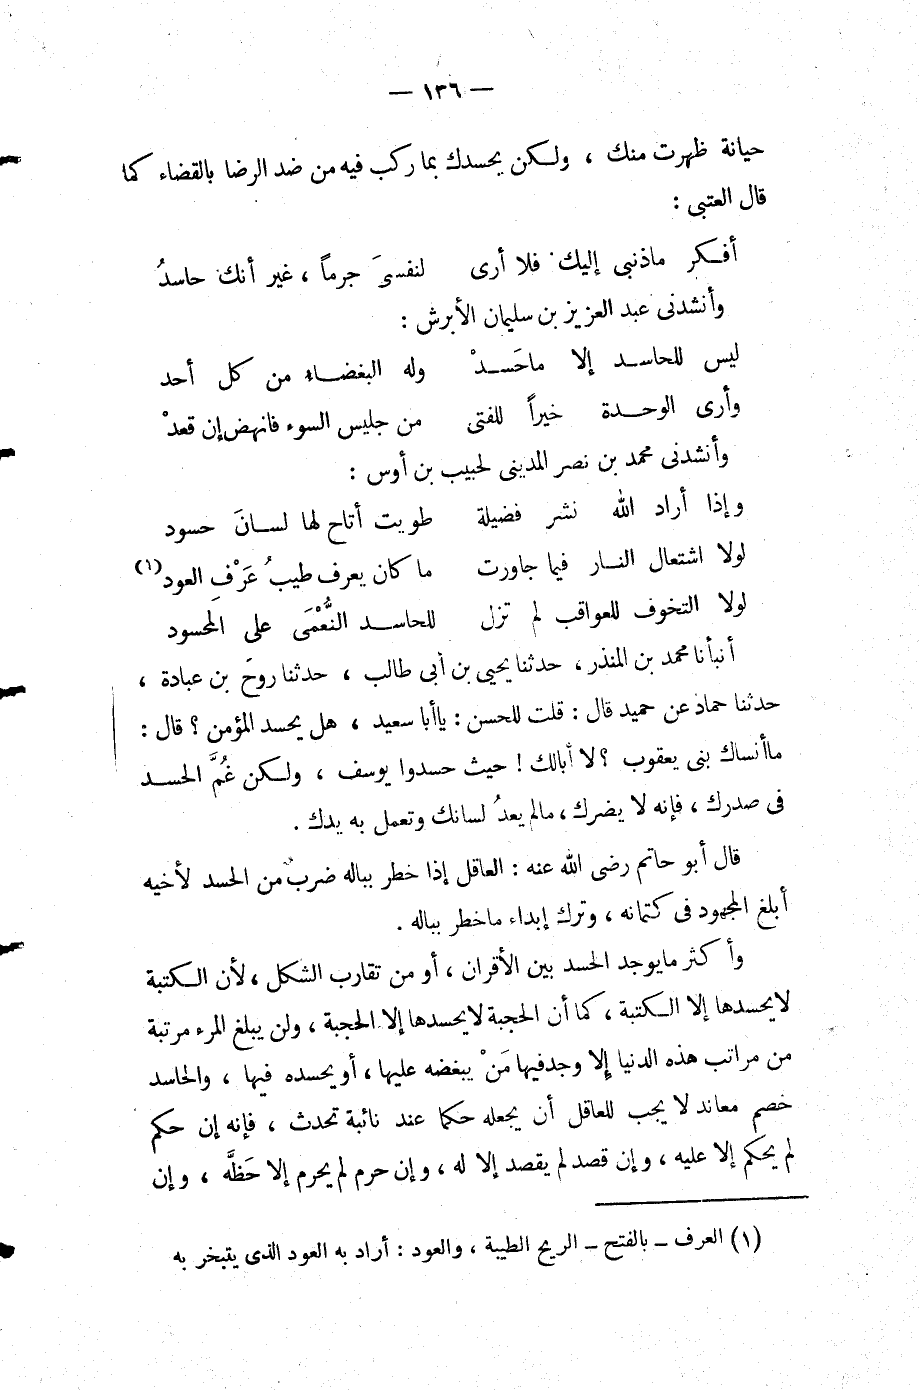 — ١٣٦ —
حيانة ظهرت منك ، ولـكن يحسدك بما ركب فيه من ضد الرضا بالقضاء كما
قال العتبى :
أفـكر ماذنبى إليك فلا أرى لنفسىَ جرماً ، غير أنك حاسدُ
وأنشدنى عبد العزيز بن سليمان الأبرش :
ليس للحاسـد إلا ماحَسـدْ وله البغضـاء من كل أحد
وأرى الوحـدة خيراً للفتى من جليس السوء فانهض إن قعدْ
وأنشدنى محمد بن نصر المدينى لحبيب بن أوس :
وإذا أراد الله نشر فضيلة طويت أتاح لها لسـانَ حسود
لولا اشتعال النـار فيما جاورت ما كان يعرف طيبُ عَرْفِ العود(١)
لولا التخوف للعواقب لم تزل للحاسـد النُّعْمَى على المحسود
أنبأنا محمد بن المنذر ، حدثنا يحيى بن أبى طالب ، حدثنا روحَ بن عبادة ،
حدثنا حماد عن حميد قال : قلت للحسن : ياأبا سعيد ، هل يحسد المؤمن ؟ قال :
ماأنساك بنى يعقوب ؟ لا أبالك ! حيث حسدوا يوسف ، ولـكن غُمَّ الحسـد
فى صدرك ، فإنه لا يضرك ، مالم يعدُ لسانك وتعمل به يدك .
قال أبو حاتم رضى الله عنه : العاقل إذا خطر بباله ضربٌ من الحسد لأخيه
أبلغ المجهود فى كتمانه ، وترك إبداء ماخطر بباله .
وأكثر مايوجد الحسد بين الأقران ، أو من تقارب الشكل ، لأن الـكتبة
لايحسدها إلا الـكتبة ، كما أن الحجبة لايحسدها إلا الحجبة ، ولن يبلغ المرء مرتبة
من مراتب هذه الدنيا إلا وجدفيها مَنْ يبغضه عليها ، أو يحسده فيها ، والحاسد
خصم معاند لا يجب للعاقل أن يجعله حكما عند نائبة تحدث ، فإنه إن حكم
لم يحكم إلا عليه ، وإن قصد لم يقصد إلا له ، وإن حرم لم يحرم إلا حَظَّه ، وإن
(١) العرف ـ بالفتح ـ الريح الطيبة ، والعود : أراد به العود الذى يتبخر به